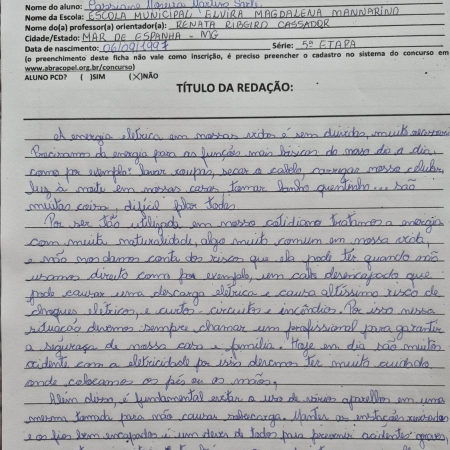 Nome do aluno:
Nome da Escola: ESCOLA MUNICIPAL ELVIRA MAGDALENA MANNARINO
Nome do(a) professor(a) orientador(a): RENATA RIBEIRO CASSADOR
Cidade/Estado: MAR DE ESPANHA - MG
Data de nascimento: 06/09/1997 Série: 5ª ETAPA
(o preenchimento deste ficha não vale como inscrição, é preciso preencher o cadastro no sistema do concurso em
www.abracopel.org.br/concurso)
ALUNO PCD? ( )SIM (X)NÃO
TÍTULO DA REDAÇÃO:
A energia elétrica em nossas vidas é sem dúvidas, muito
Precisamos da energia para as funções mais básicas do nosso dia a dia,
como por exemplo: lavar roupas, secar o cabelo, carregar nosso celular,
luz à noite em nossas casas, tomar banho quentinho... são
muitas coisas, difícil falar todas.
Por ser tão utilizada em nosso cotidiano tratamos a energia
com muita naturalidade, algo muito comum em nossa vida,
e não nos damos conta dos riscos que ela pode ter quando não
usamos direito como por exemplo, um cabo desencapado que
pode causar uma descarga elétrica e causa altíssimo risco de
choques elétricos, e curtos-circuitos e incêndios. Por isso nessa
situação devemos sempre chamar um profissional para garantir
a seguraça de nossa casa e família. Hoje em dia são muitos
acidente com a eletricidade por isso devemos ter muito cuidado,
onde colocamos os pés ou as mãos,
Além disso, é fundamental evitar o uso de vários aparelhos em uma
mesma tomada para não causar sobrecarga. Manter as
e os fios bem encapados é um dever de todos para prevenir acidentes graves,